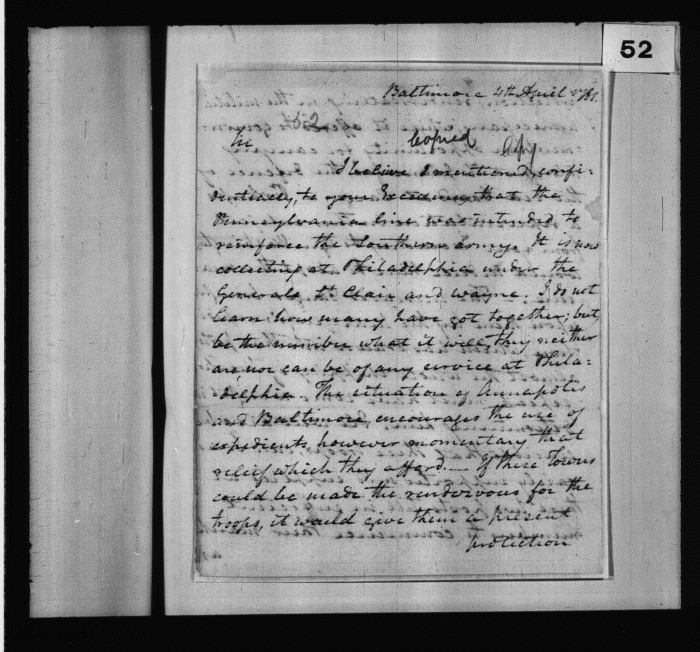 52
Baltimore 4th April 1781.
52
Sir
Copied
Copy
I believe I mentioned confi-
dentially, to your Excellency that the
Pennsylvania line was intended to
reinforce the Southern army. It is now
collecting at Philadelphia under the
Generals St Clair and Wayne. I do not
learn how many have got together; but
be the number what it will they neither
are nor can be of any service at Phila-
delphia. The situation of Annapolis
and Baltimore, encourages the use of
expedients, however momentary that
relief which they afford.— If these Towns
could be made the rendezvous for the
troops, it would give them a present
protection